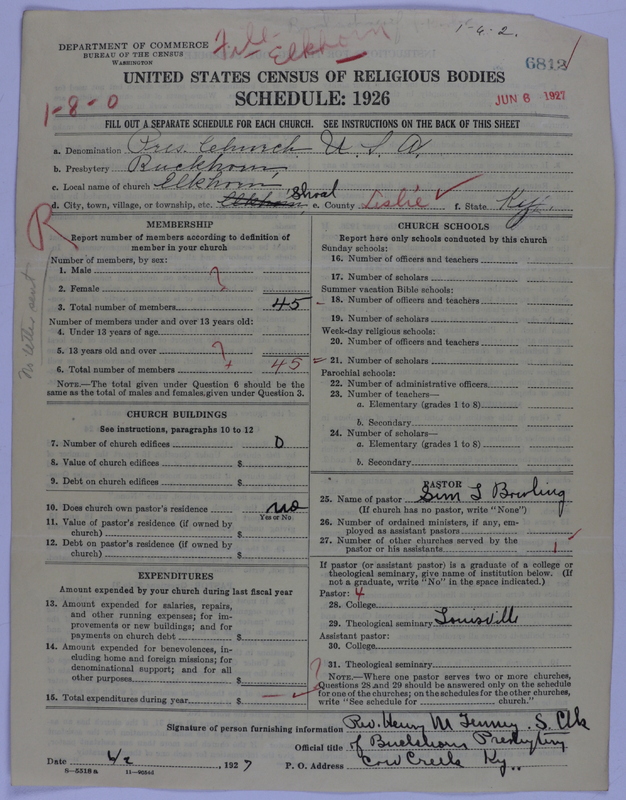 1-4-2.
DEPARTMENT OF COMMERCE
BUREAU OF THE CENSUS
WASHINGTON
Elkhorn
6812
UNITED STATES CENSUS OF RELIGIOUS BODIES
SCHEDULE: 1926
JUN 6 1927
1-8-0
FILL OUT A SEPARATE SCHEDULE FOR EACH CHURCH. SEE INSTRUCTIONS ON THE BACK OF THIS SHEET
a. Denomination Pres. Church U. S. A.
b. Presbytery Buckhorn
c. Local name of church Elkhorn
d. City, town, village, or township, etc. Elkhorn Shoal e. County Leslie f. State Ky.
R
No letter sent
MEMBERSHIP
Report number of members according to definition of
member in your church
Number of members, by sex:
1. Male ?
2. Female
3. Total number of members 45
Number of members under and over 13 years old:
4. Under 13 years of age
5. 13 years old and over ?
6. Total number of members 45
NOTE.—The total given under Question 6 should be the
same as the total of males and females given under Question 3.
CHURCH BUILDINGS
See instructions, paragraphs 10 to 12
7. Number of church edifices 0
8. Value of church edifices $
9. Debt on church edifices $
10. Does church own pastor's residence no
Yes or No.
11. Value of pastor's residence (if owned by
church) $
12. Debt on pastor's residence (if owned by
church) $
EXPENDITURES
Amount expended by your church during last fiscal year
13. Amount expended for salaries, repairs,
and other running expenses; for im-
provements or new buildings; and for
payments on church debt $
14. Amount expended for benevolences, in-
cluding home and foreign missions; for
denominational support; and for all
other purposes $
15. Total expenditures during year $
CHURCH SCHOOLS
Report here only schools conducted by this church
Sunday schools:
16. Number of officers and teachers
17. Number of scholars
Summer vacation Bible schools:
18. Number of officers and teachers
19. Number of scholars
Week-day religious schools:
20. Number of officers and teachers
21. Number of scholars
Parochial schools:
22. Number of administrative officers
23. Number of teachers—
a. Elementary (grades 1 to 8)
b. Secondary
24. Number of scholars—
a. Elementary (grades 1 to 8)
b. Secondary
PASTOR
25. Name of pastor Sim L Bowling
(If church has no pastor, write "None")
26. Number of ordained ministers, if any, em-
ployed as assistant pastors
27. Number of other churches served by the
pastor or his assistants 1
If pastor (or assistant pastor) is a graduate of a college or
theological seminary, give name of institution below. (If
not a graduate, write "No" in the space indicated.)
Pastor: 4
28. College
29. Theological seminary Louisville
Assistant pastor:
30. College
31. Theological seminary
?
NOTE.—Where one pastor serves two or more churches,
Questions 28 and 29 should be answered only on the schedule
for one of the churches; on the schedules for the other churches,
write "See schedule for church."
Signature of person furnishing information Rev. Henry M Tenney. S. Clk
Official title of Buckhorn Presbytery
Date 6/2, 1927 P. O. Address Cow Creek Ky.
8-5518a 11-90564